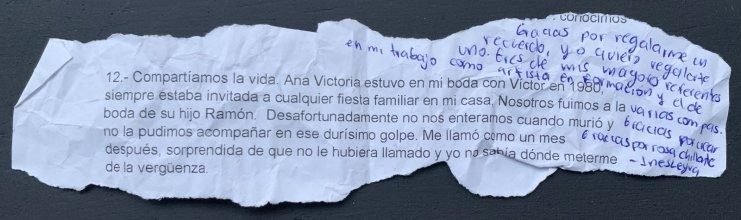 conocimos
Gracias por regalarme un
recuerdo, yo quiero regalarte
uno. Eres de mis mayores referentes
en mi trabajo como artista en formación y el de
varias compas.
Gracias por crear
Gracias por rosa chillante
- Ines Leyva
12.- Compartíamos la vida. Ana Victoria estuvo en mi boda con Víctor en 1980,
siempre estaba invitada a cualquier fiesta familiar en mi casa. Nosotros fuimos a la
boda de su hijo Ramón. Desafortunadamente no nos enteramos cuando murió y
no la pudimos acompañar en ese durísimo golpe. Me llamó como un mes
después, sorprendida de que no le hubiera llamado y yo no sabía dónde meterme
de la vergüenza.